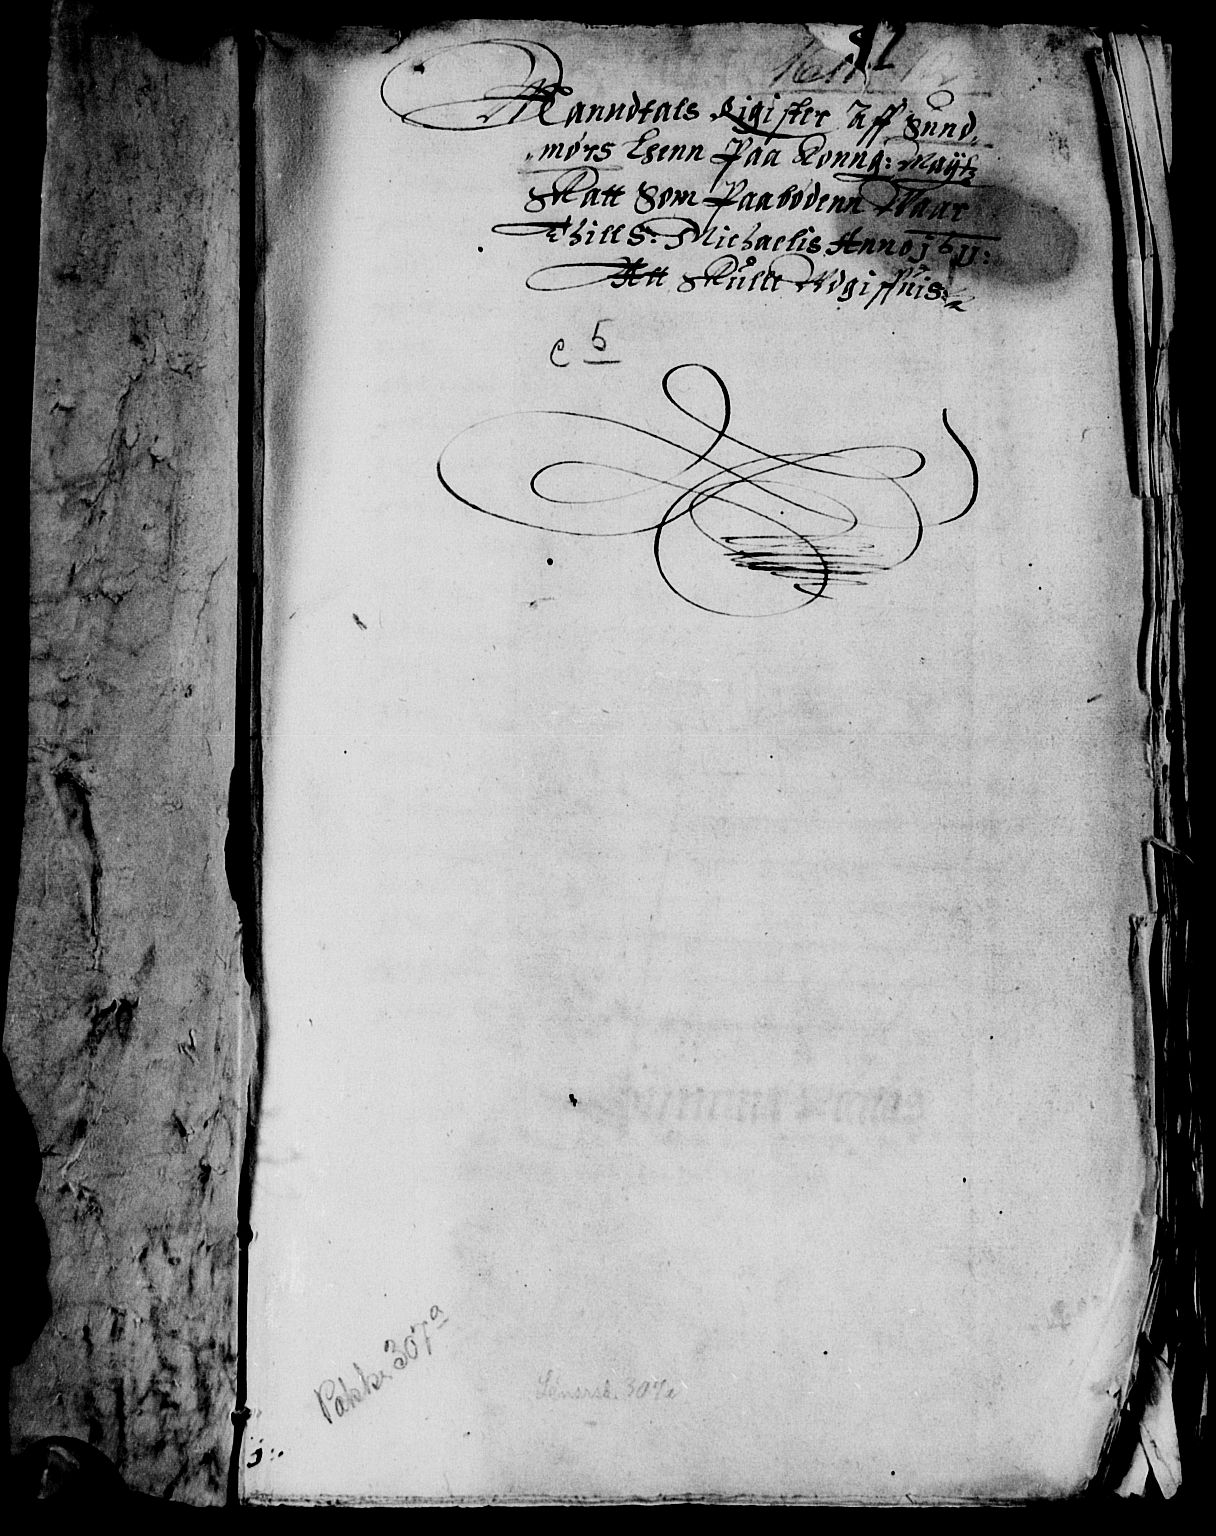 82
1611-12
Manndtals Rigister Aff Sund,
mørs Lhenn Paa Konng: Maytz
Skatt Som Paabødenn Waar
Thill S: Michaelis Anno j611:
Att Skulle Wdgiffuis:
C 5
Pakke 307a
Lensrsk. 307a
j: